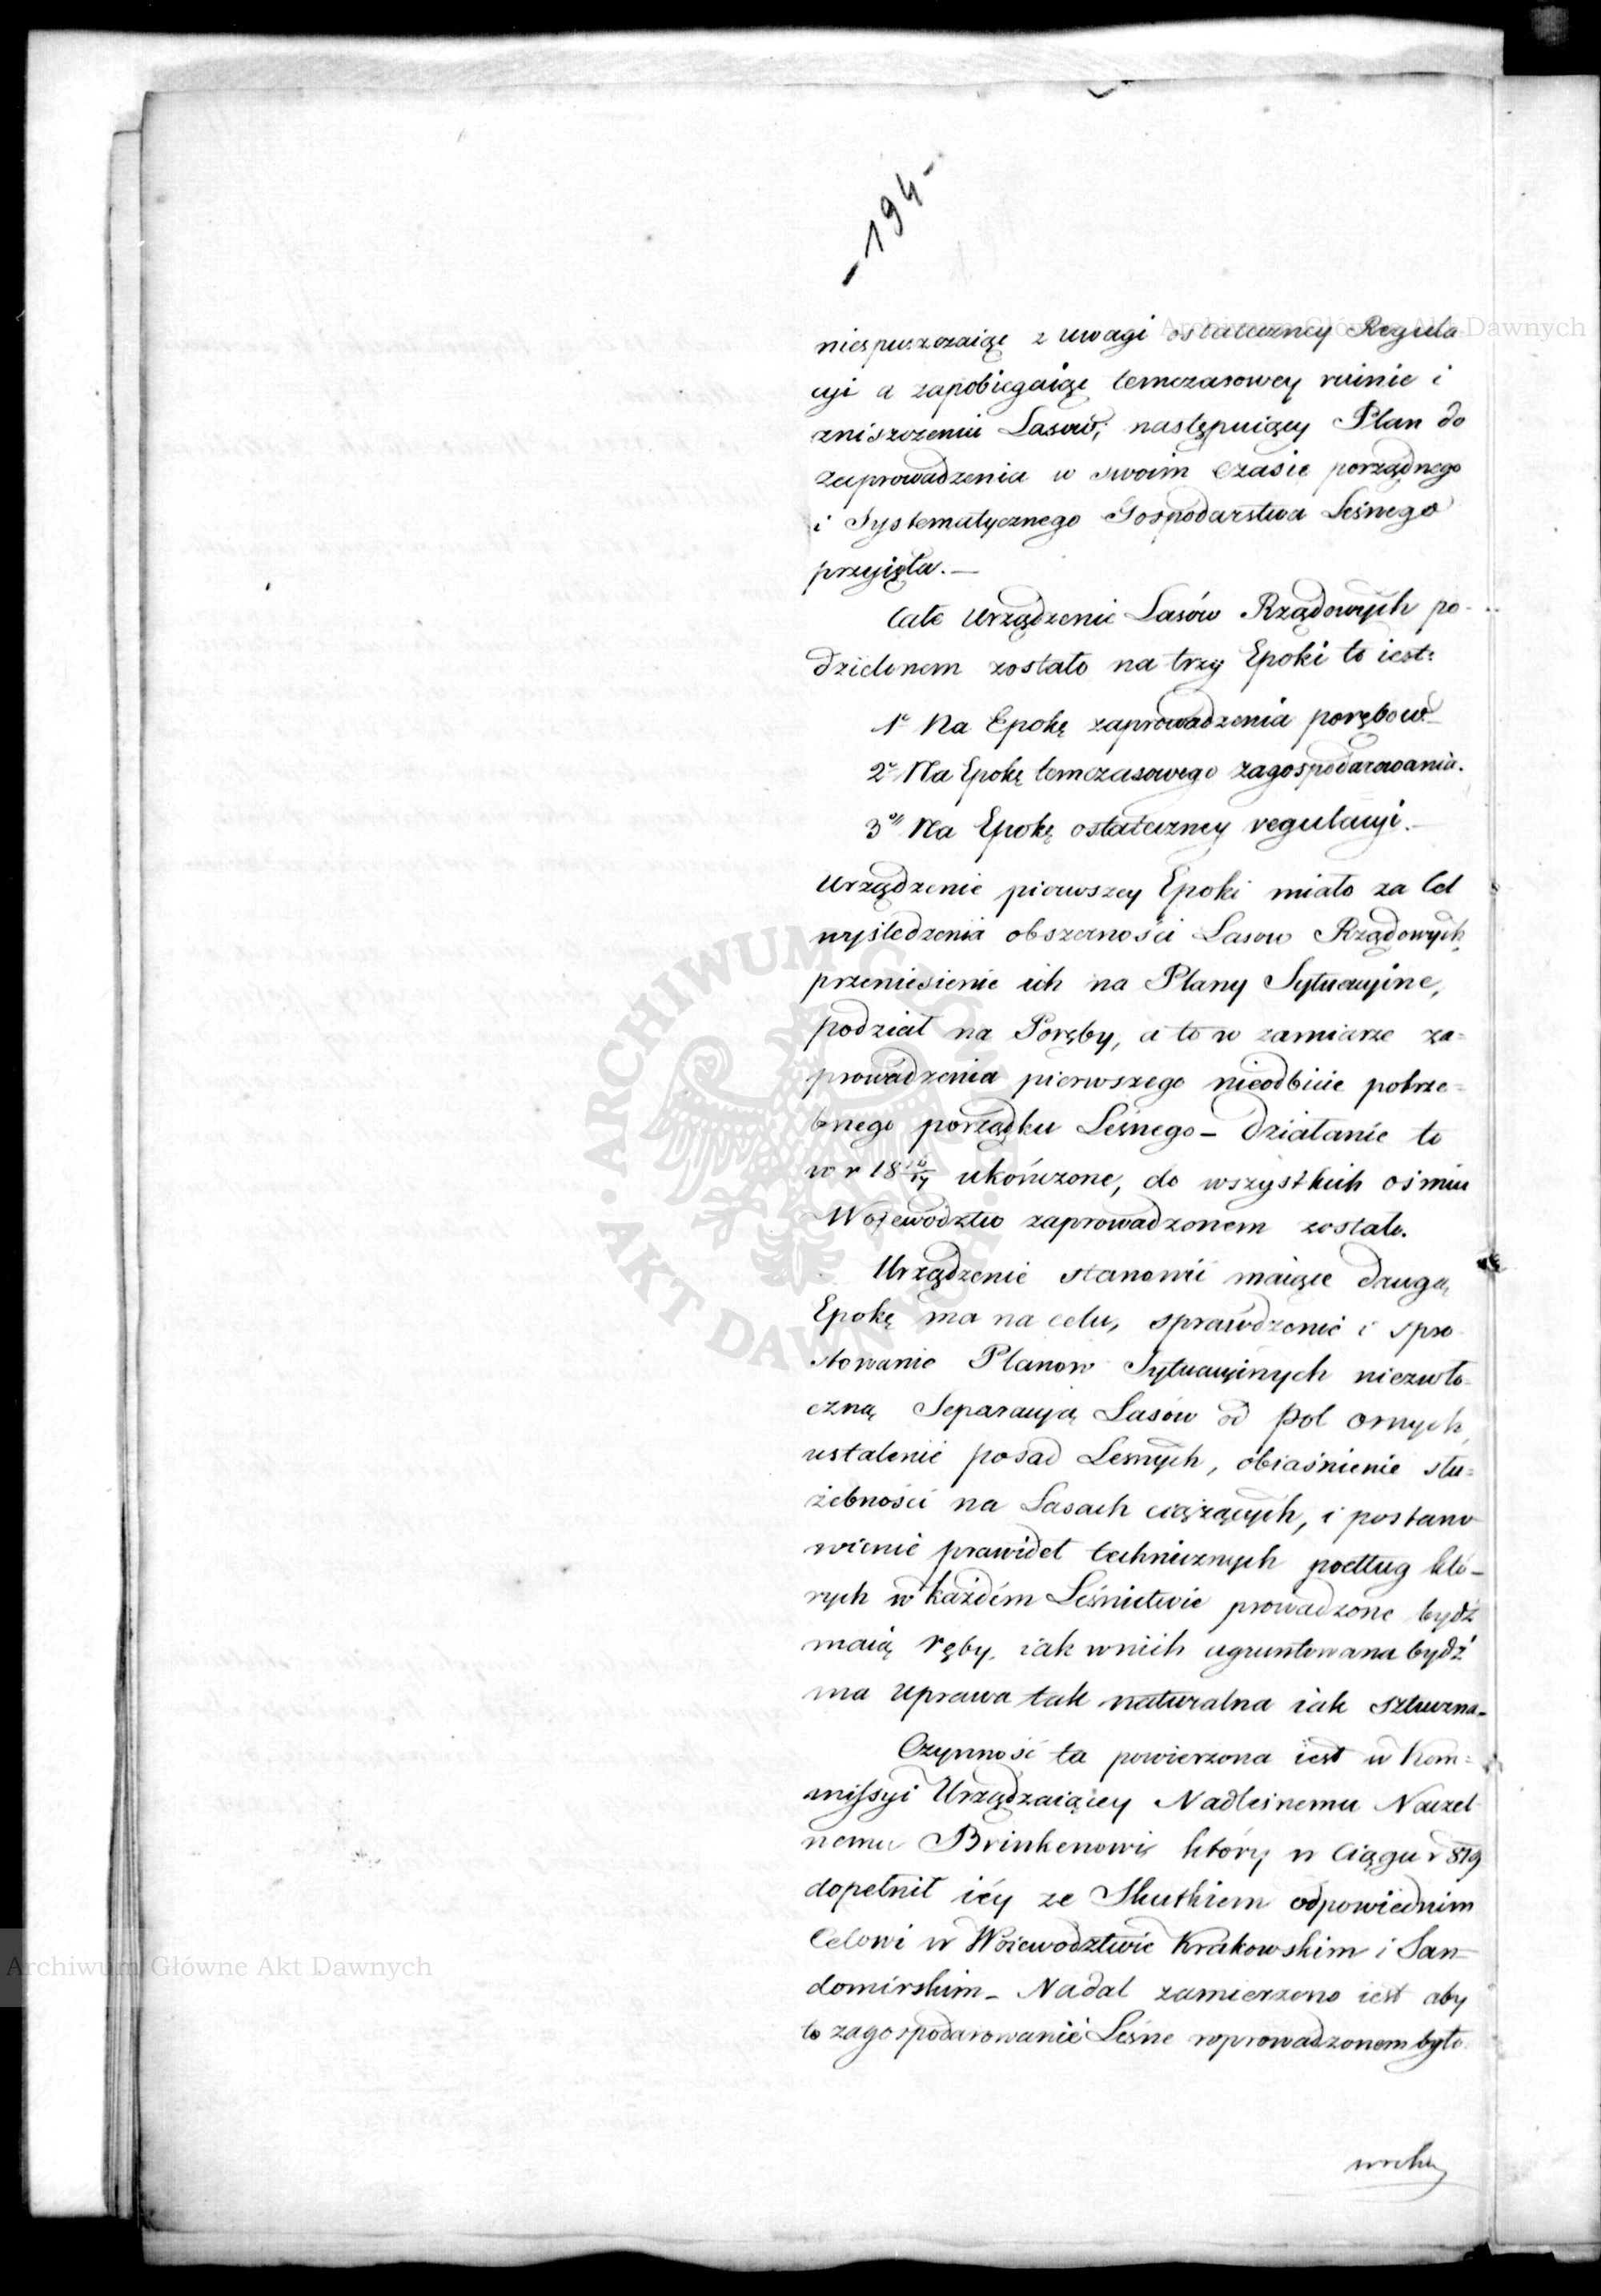 -194-
niespuszczaiąc z uwagi ostateczney Regula
cyi a zapobiegaiąc temczasowey ruinie i
zniszczeniu Lasów, następuiący Plan do
zaprowadzenia w swoim czasie porządnego
i Systematycznego Gospodarstwa Leśnego
przyięła.—
Całe Urządzenie Lasów Rządowych po-
dzielonem zostało na trzy Epoki to iest:
1° Na Epokę zaprowadzenia porębow
2° Na Epokę temczasowego zagospodarowania.
3° Na Epokę ostateczney regulacyi.—
Urządzenie pierwszey Epoki miało za Cel
wyśledzenia obszerności Lasow Rządowych,
przeniesienie ich na Plany Sytuacyine,
podział na Poręby, a to w zamiarze za=
prowadzenia pierwszego nieodbicie potrze=
bnego porządku Leśnego – działanie to
w r 18 16/17 ukończone, do wszystkich ośmiu
Wojewodztw zaprowadzonem zostało.
Urządzenie stanowić maiące drugą
Epokę ma na celu, sprawdzenie i spro-
stowanie Planow Sytuacyinych niezwło-
czną Separacyą Lasów od pol ornych,
ustalenie posad Lesnych, obiaśnienie słu=
żebności na Lasach ciążących, i postano
wienie prawideł technicznych podług któ-
rych w każdém Leśnictwie prowadzone bydź
maią ręby, iak w nich ugruntowana bydź
ma uprawa tak naturalna iak sztuczna.
Czynność ta powierzona iest w Kom=
missyi Urządzaiącey Nadleśnemu Naczel
nemu Brinkenowi, który w Ciągu r 819
dopełnił iéy ze Skutkiem odpowiednim
Celowi w Woiewodztwie Krakowskim i San-
domirskim – Nadal zamierzono iest aby
to zagospodarowanie Leśne wprowadzonem było
Archiwum Główne Akt Dawnych
Archiwum Główne Akt Dawnych
ARCHIWUM GŁÓWNE AKT DAWNYCH